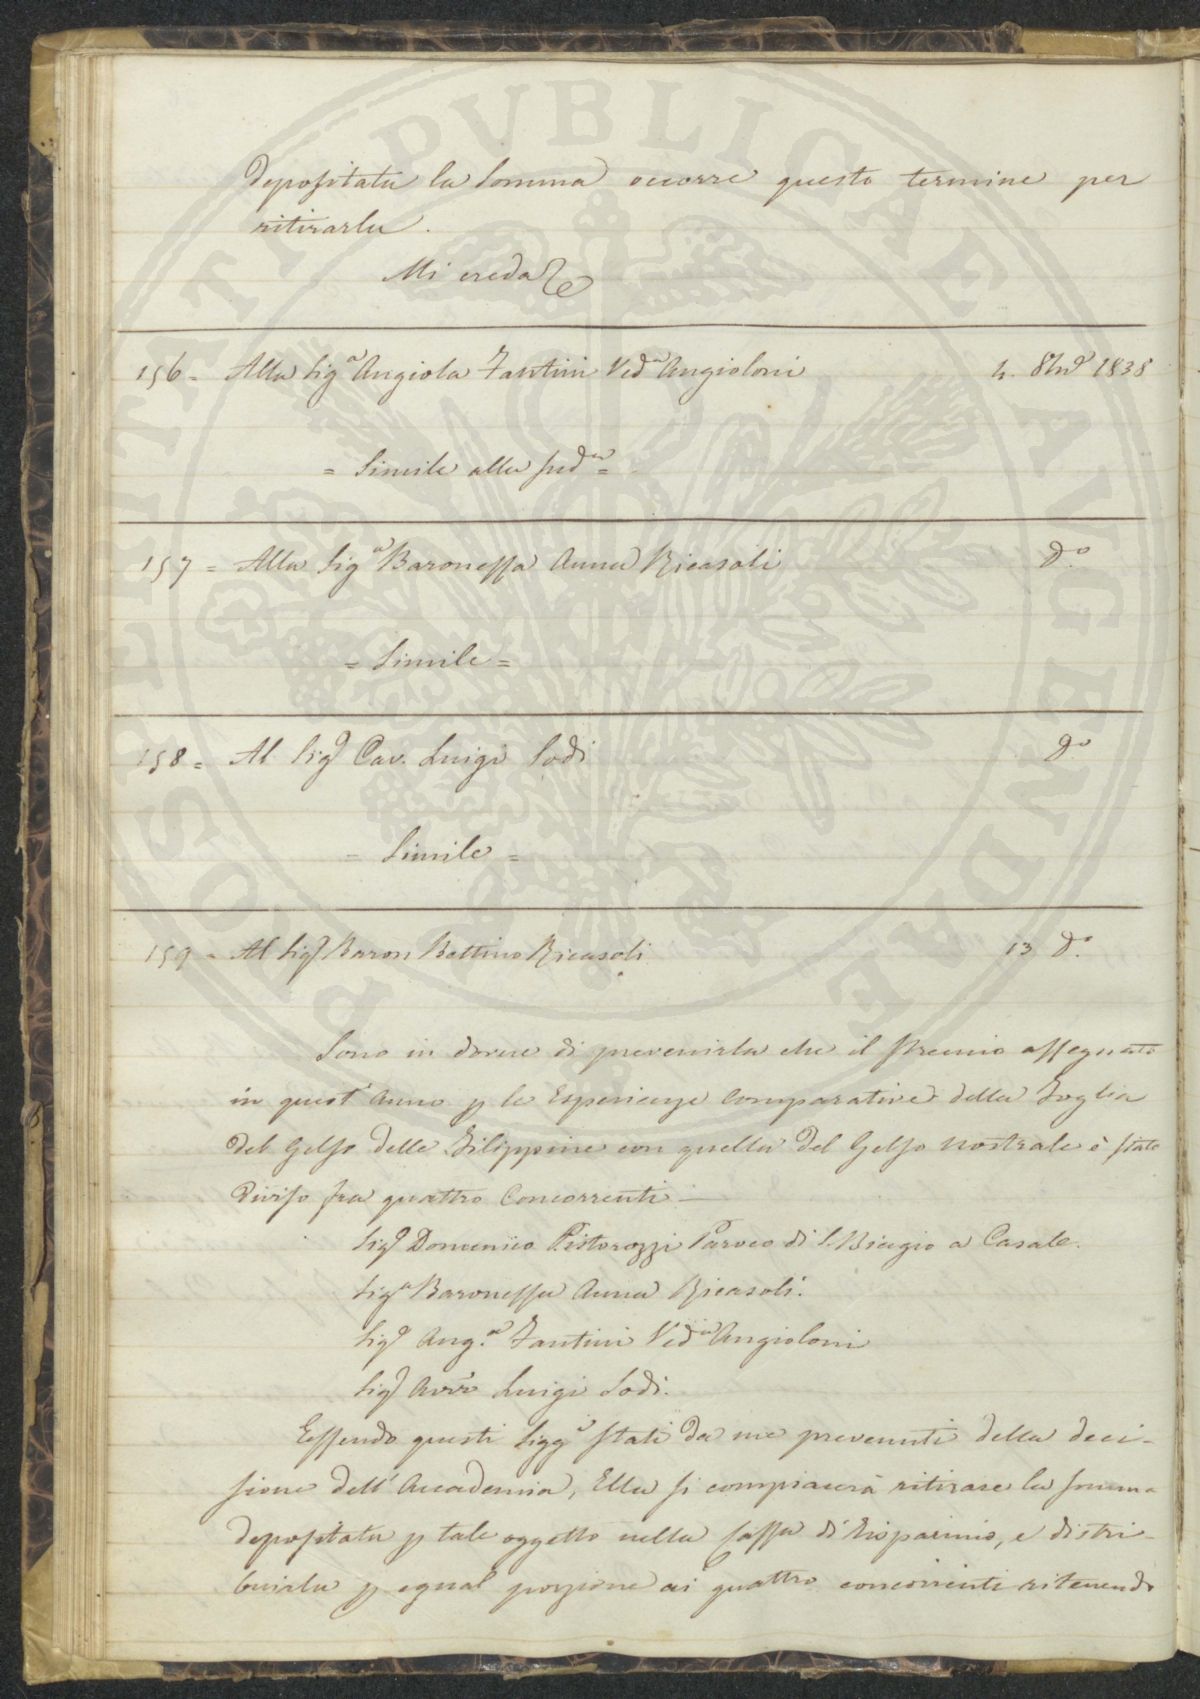 depositata la Somma occorre questo termine per
ritirarla.
Mi creda
156 = Alla Sigª Angiola Fantini Vedª Angioloni 4. 8bre 1838
= Simile alla sudª =
157 = Alla Sigª Baronessa Anna Ricasoli dº
= Simile =
158 = Al Sigr Cav. Luigi Sodi dº
= Simile =
159 = Al Sigr Baron Bettino Ricasoli 13 dº
Sono in dovere di prevenirla che il Premio assegnato
in quest' Anno p le Esperienze Comparative della Foglia
del Gelso delle Filippine con quella del Gelso nostrale è stato
diviso fra quattro Concorrenti
Sigr Domenico Pistorozzi Paroco di S. Biagio a Casale.
Sigª Baronessa Anna Ricasoli.
Sigª Ang.ª Fantini Vedª Angioloni
Sigr Luigi Sodi.
Essendo questi Siggi stati da me prevenuti della deci-
sione dell' Accademia, Ella si compiacerà ritirare la somma
depositata p tale oggetto nella Cassa di Risparmio, e distri-
buirla p egual porzione ai quattro concorrenti ritenendo
PROSPERITATI PVBLICAE AVGENDAE